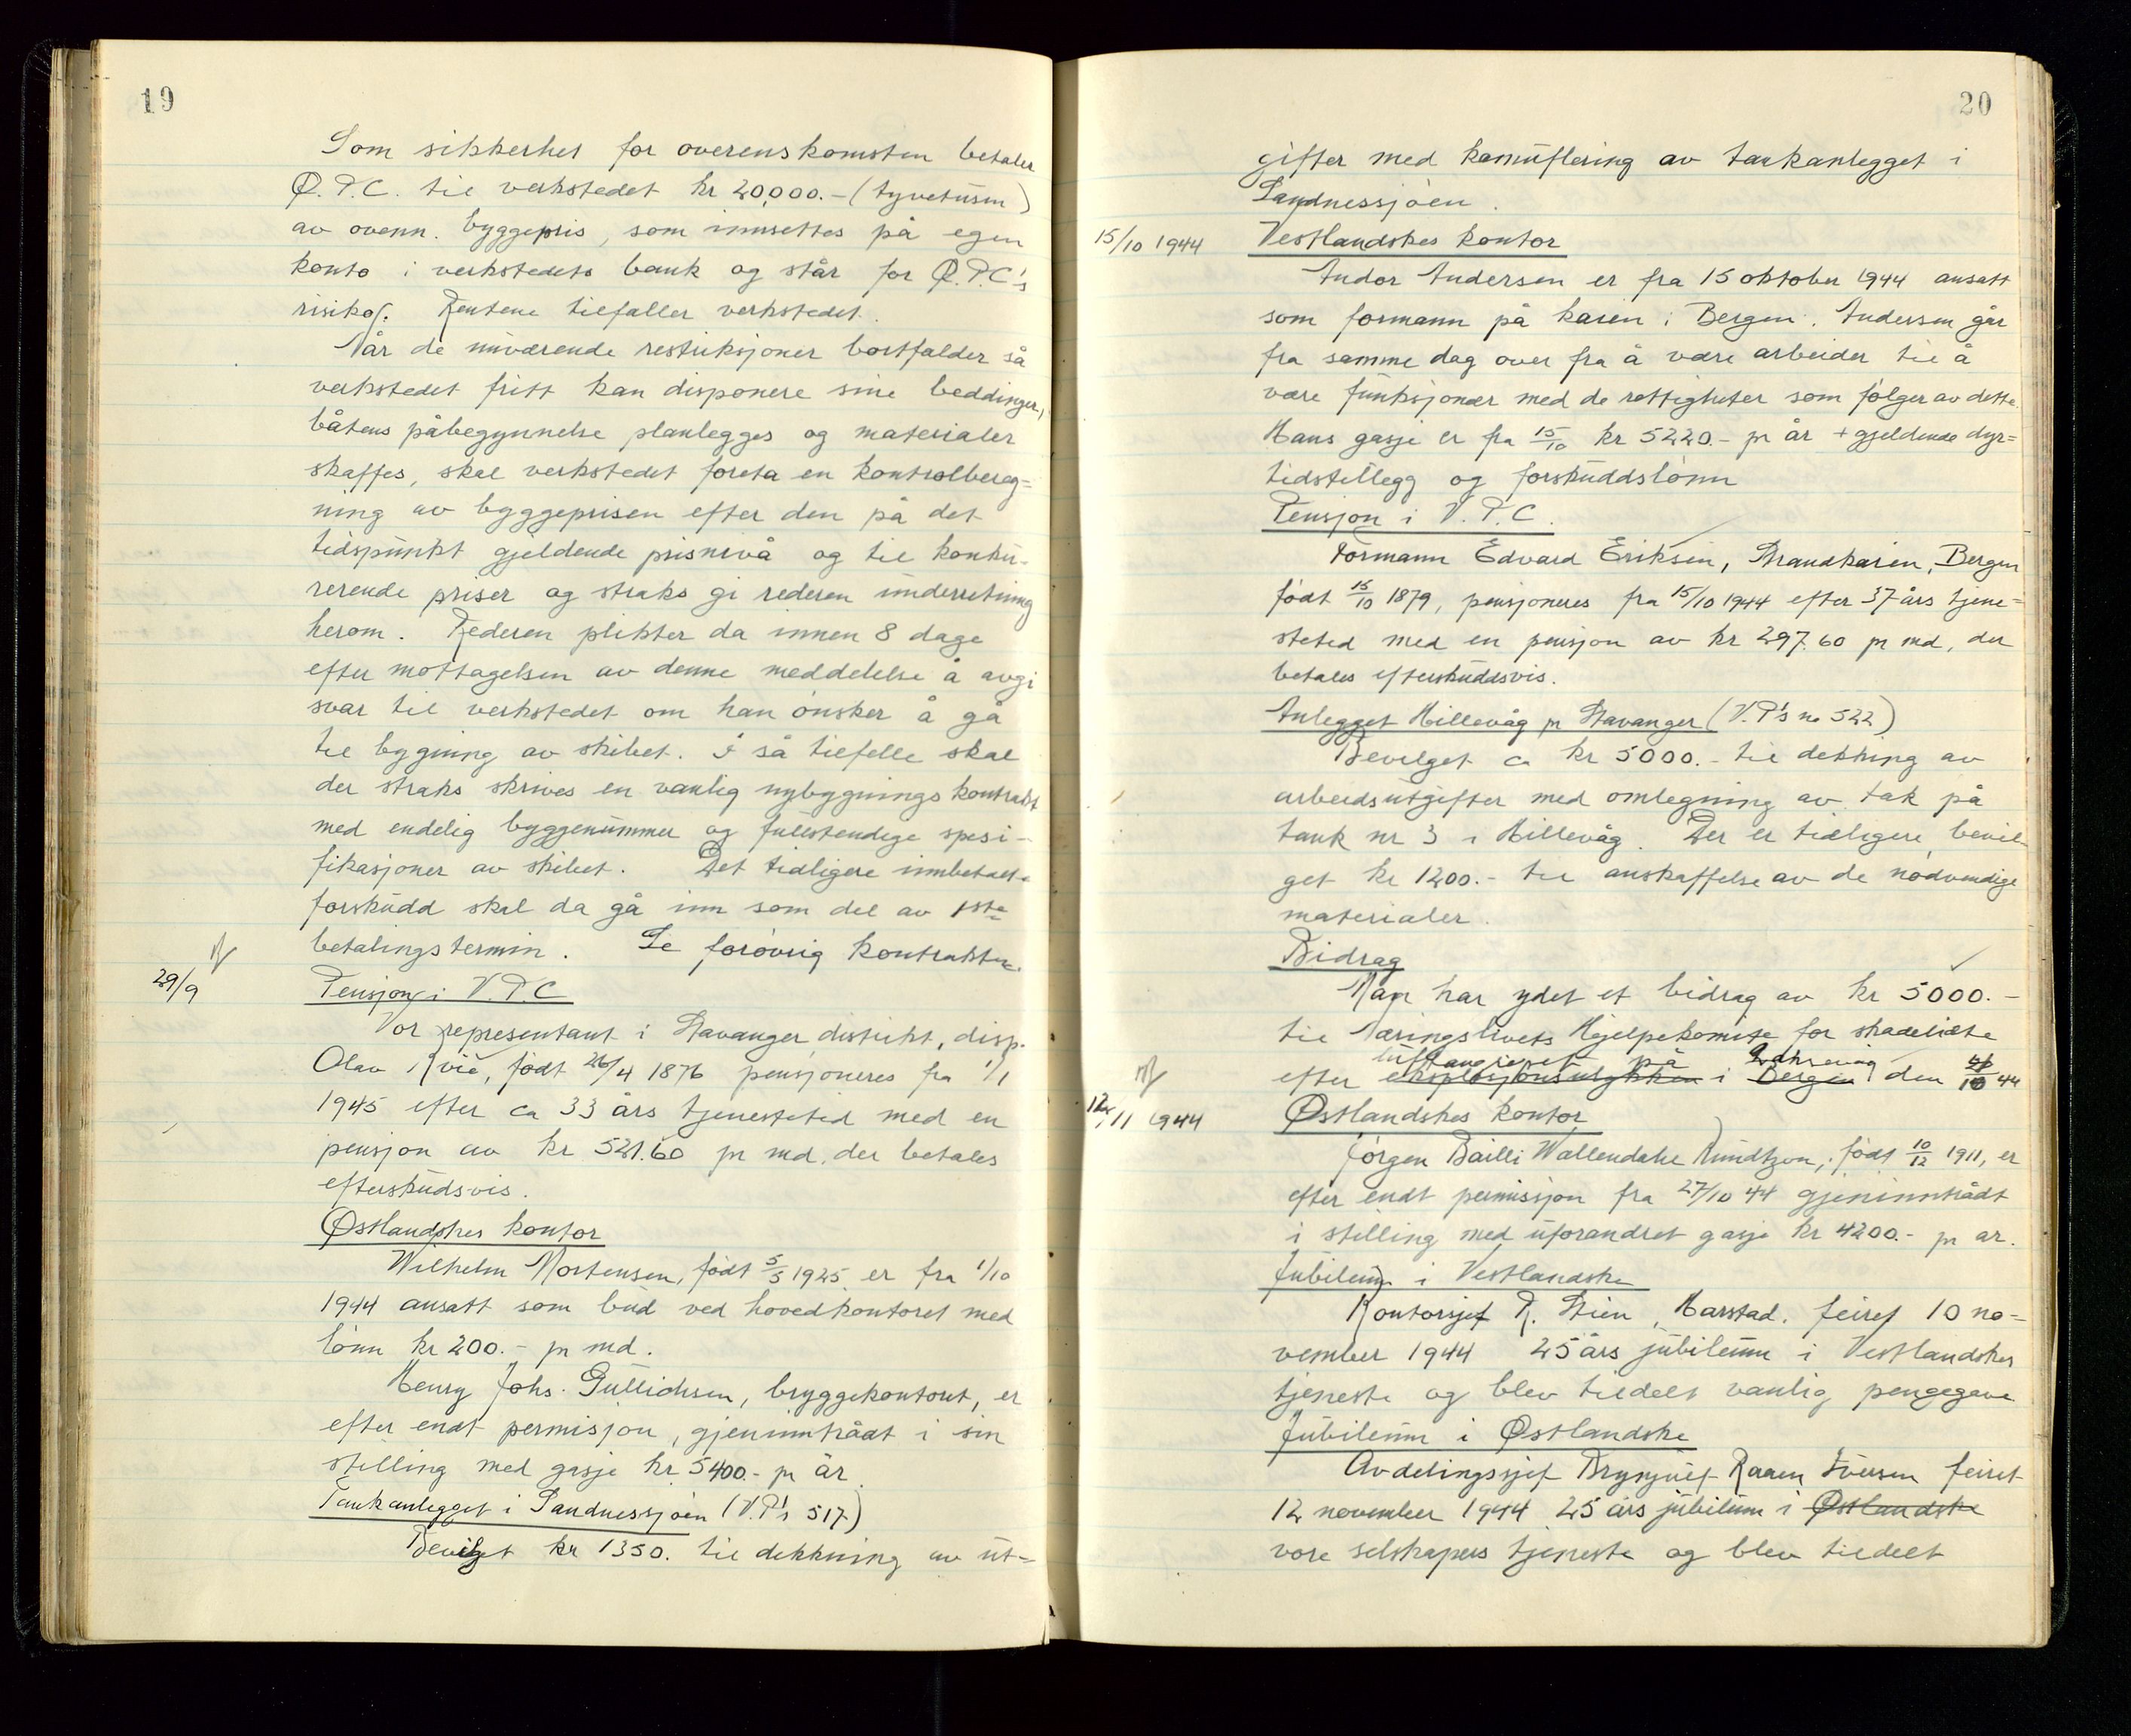 19
Som sikkerhet for overenskomsten betaler
Ø.P.C. til verkstedet kr 20,000.- (tyvetusen)
av ovenn. byggepris, som innsettes på egen
konto i verkstedets bank og står for Ø.P.C's
risiko. Rentene tilfaller verkstedet.
Når de nuværende restriksjoner bortfalder så
verkstedet fritt kan disponere sine beddinger,
båtens påbegynnelse planlegges og materialer
skaffes, skal verkstedet foreta en kontrolbereg=
ning av byggeprisen efter den på det
tidspunkt gjeldende prisnivå og til konku-
rerende priser og straks gi rederen underretning
herom. Rederen plikter da innen 8 dage
efter mottagelsen av denne meddelelse å avgi
svar til verkstedet om han ønsker å gå
til bygning av skibet. I så tilfelle skal
der straks skrives en vanlig nybygnings kontrakt
med endelig byggenummer og fullstendige spesi-
fikasjoner av skibet. Det tidligere innbetalte
forskudd skal da gå inn som del av 1ste
betalingstermin. Se forøvrig kontrakten.
29/9 Pensjon i V.P.C
Vor representant i Stavanger distrikt, disp.
Olav Kvie, født 26/4 1876 pensjoneres fra 1/1
1945 efter ca 33 års tjenestetid med en
pensjon av kr 521.60 pr md. der betales
efterskudsvis.
Østlandskes kontor
Wilhelm Mortensen, født 5/5 1925 er fra 1/10
1944 ansatt som bud ved hovedkontoret med
lønn kr 200.- pr md.
Henry Johs. Gullichsen, bryggekontoret, er
efter endt permisjon, gjeninntrådt i sin
stilling med gasje kr 5400.- pr år.
Tankanlegget i Sandnessjøen (V.P's 517)
Bevilget kr 1350. til dekkning av ut=
20
gifter med kamuflering av tankanlegget i
Sandnessjøen.
15/10 1944 Vestlandskes kontor
Andor Andersen er fra 15 oktober 1944 ansatt
som formann på kaien i Bergen. Andersen går
fra samme dag over fra å være arbeider til å
være funksjonær med de rettigheter som følger av dette.
Hans gasje er fra 15/10 kr 5220.- pr år + gjeldende dyr=
tidstillegg og forskuddslønn
Pensjon i V.P.C.
Formann Edvard Eriksen, Strandkaien, Bergen
født 15/10 1879, pensjoneres fra 15/10 1944 efter 37 års tjene=
stetid med en pensjon av kr 297.60 pr md, der
betales efterskuddsvis.
Anlegget Hillevåg pr Stavanger (V.P's no 522)
Bevilget ca kr 5000.- til dekking av
arbeidsutgifter med omlegning av tak på
tank nr 3 i Hillevåg. Der er tidligere bevil-
get kr 1200.- til anskaffelse av de nødvendige
materialer.
Bidrag
Man har ydet et bidrag av kr 5000.-
til Næringslivets Hjelpekomite for skadelidte
luftangrepet på Laksevåg
efter eksplosjonsulykken i Bergen den 4/10 44
12/11 1944 Østlandskes kontor
Jørgen Bailli Wallendahl Knudtzon, født 10/12 1911, er
efter endt permisjon fra 27/10 44 gjeninntrådt
i stilling med uforandret gasje kr 4200.- pr ar.
Jubileum i Vestlandske
Kontorsjef R. Stien, Harstad, feiret 10 no=
vember 1944 25 års jubileum i Vestlandskes
tjeneste og blev tildelt vanlig pengegave
Jubileum i Østlandske
Avdelingssjef Brynjulf Iversen feiret
12 november 1944 25 års jubileum i Østlandske
vore selskapers tjeneste og blev tildelt